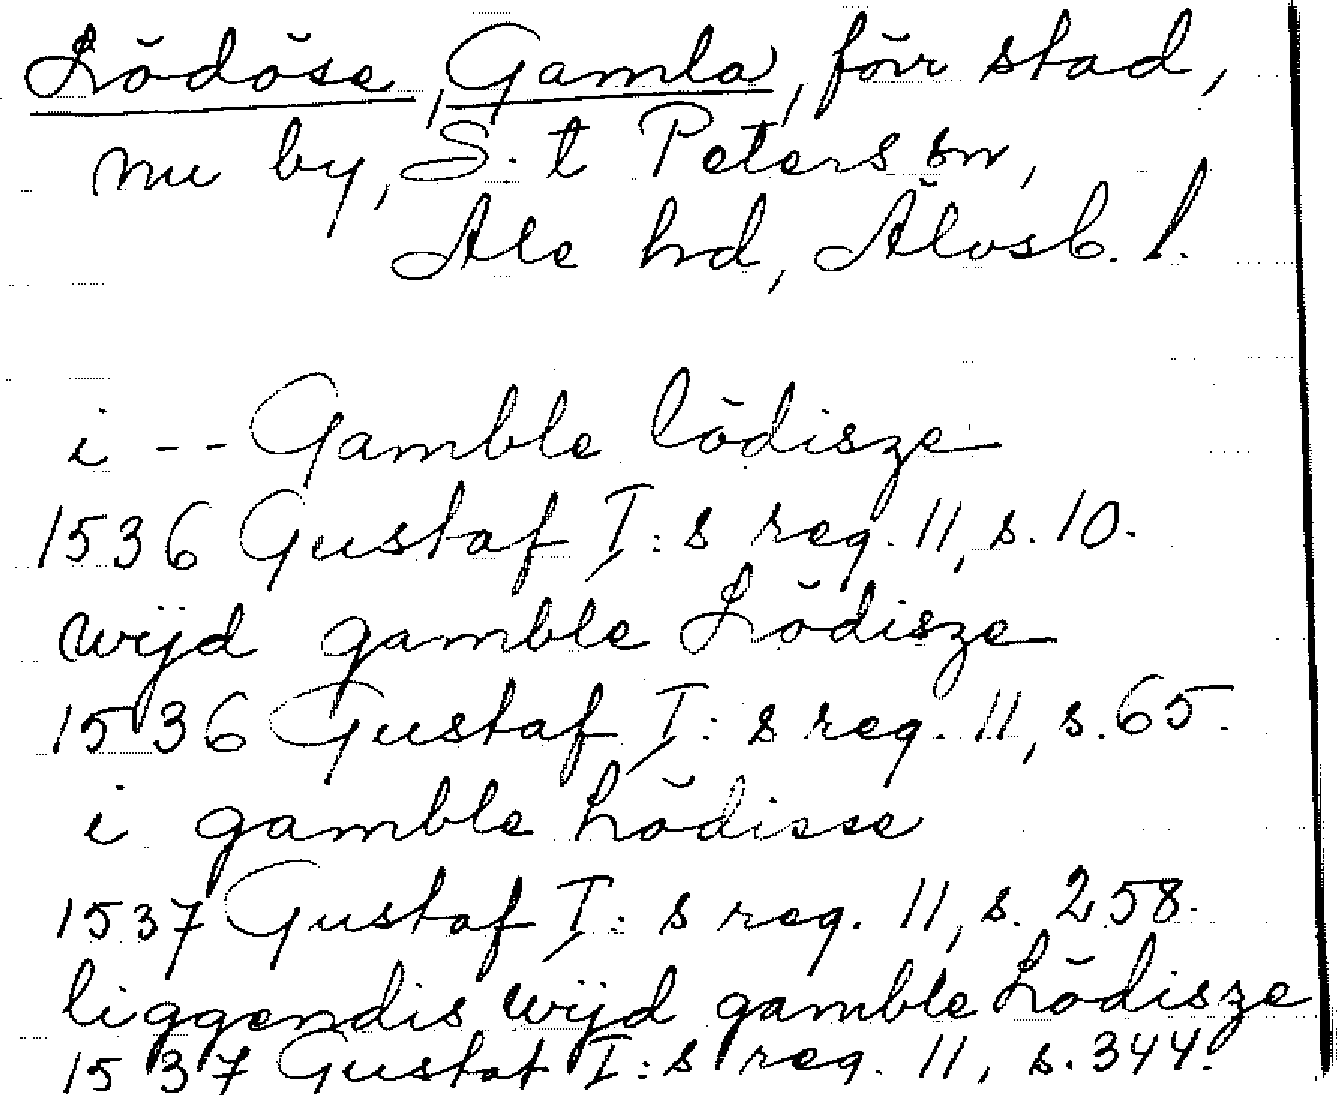 Lödöse, Gamla, förr stad,
nu by, S:t Peters sn,
Ale hd, Älvsb. l.
i -- Gamble lödisze
1536 Gustaf I:s reg. 11, s. 10.
wijd gamble Lödisze
1536 Gustaf I:s reg. 11, s. 65.
i gamble Lödisse
1537 Gustaf I:s reg. 11, s. 258.
liggendis wijd gamble Lödisze
1537 Gustaf I:s reg. 11, s. 344.